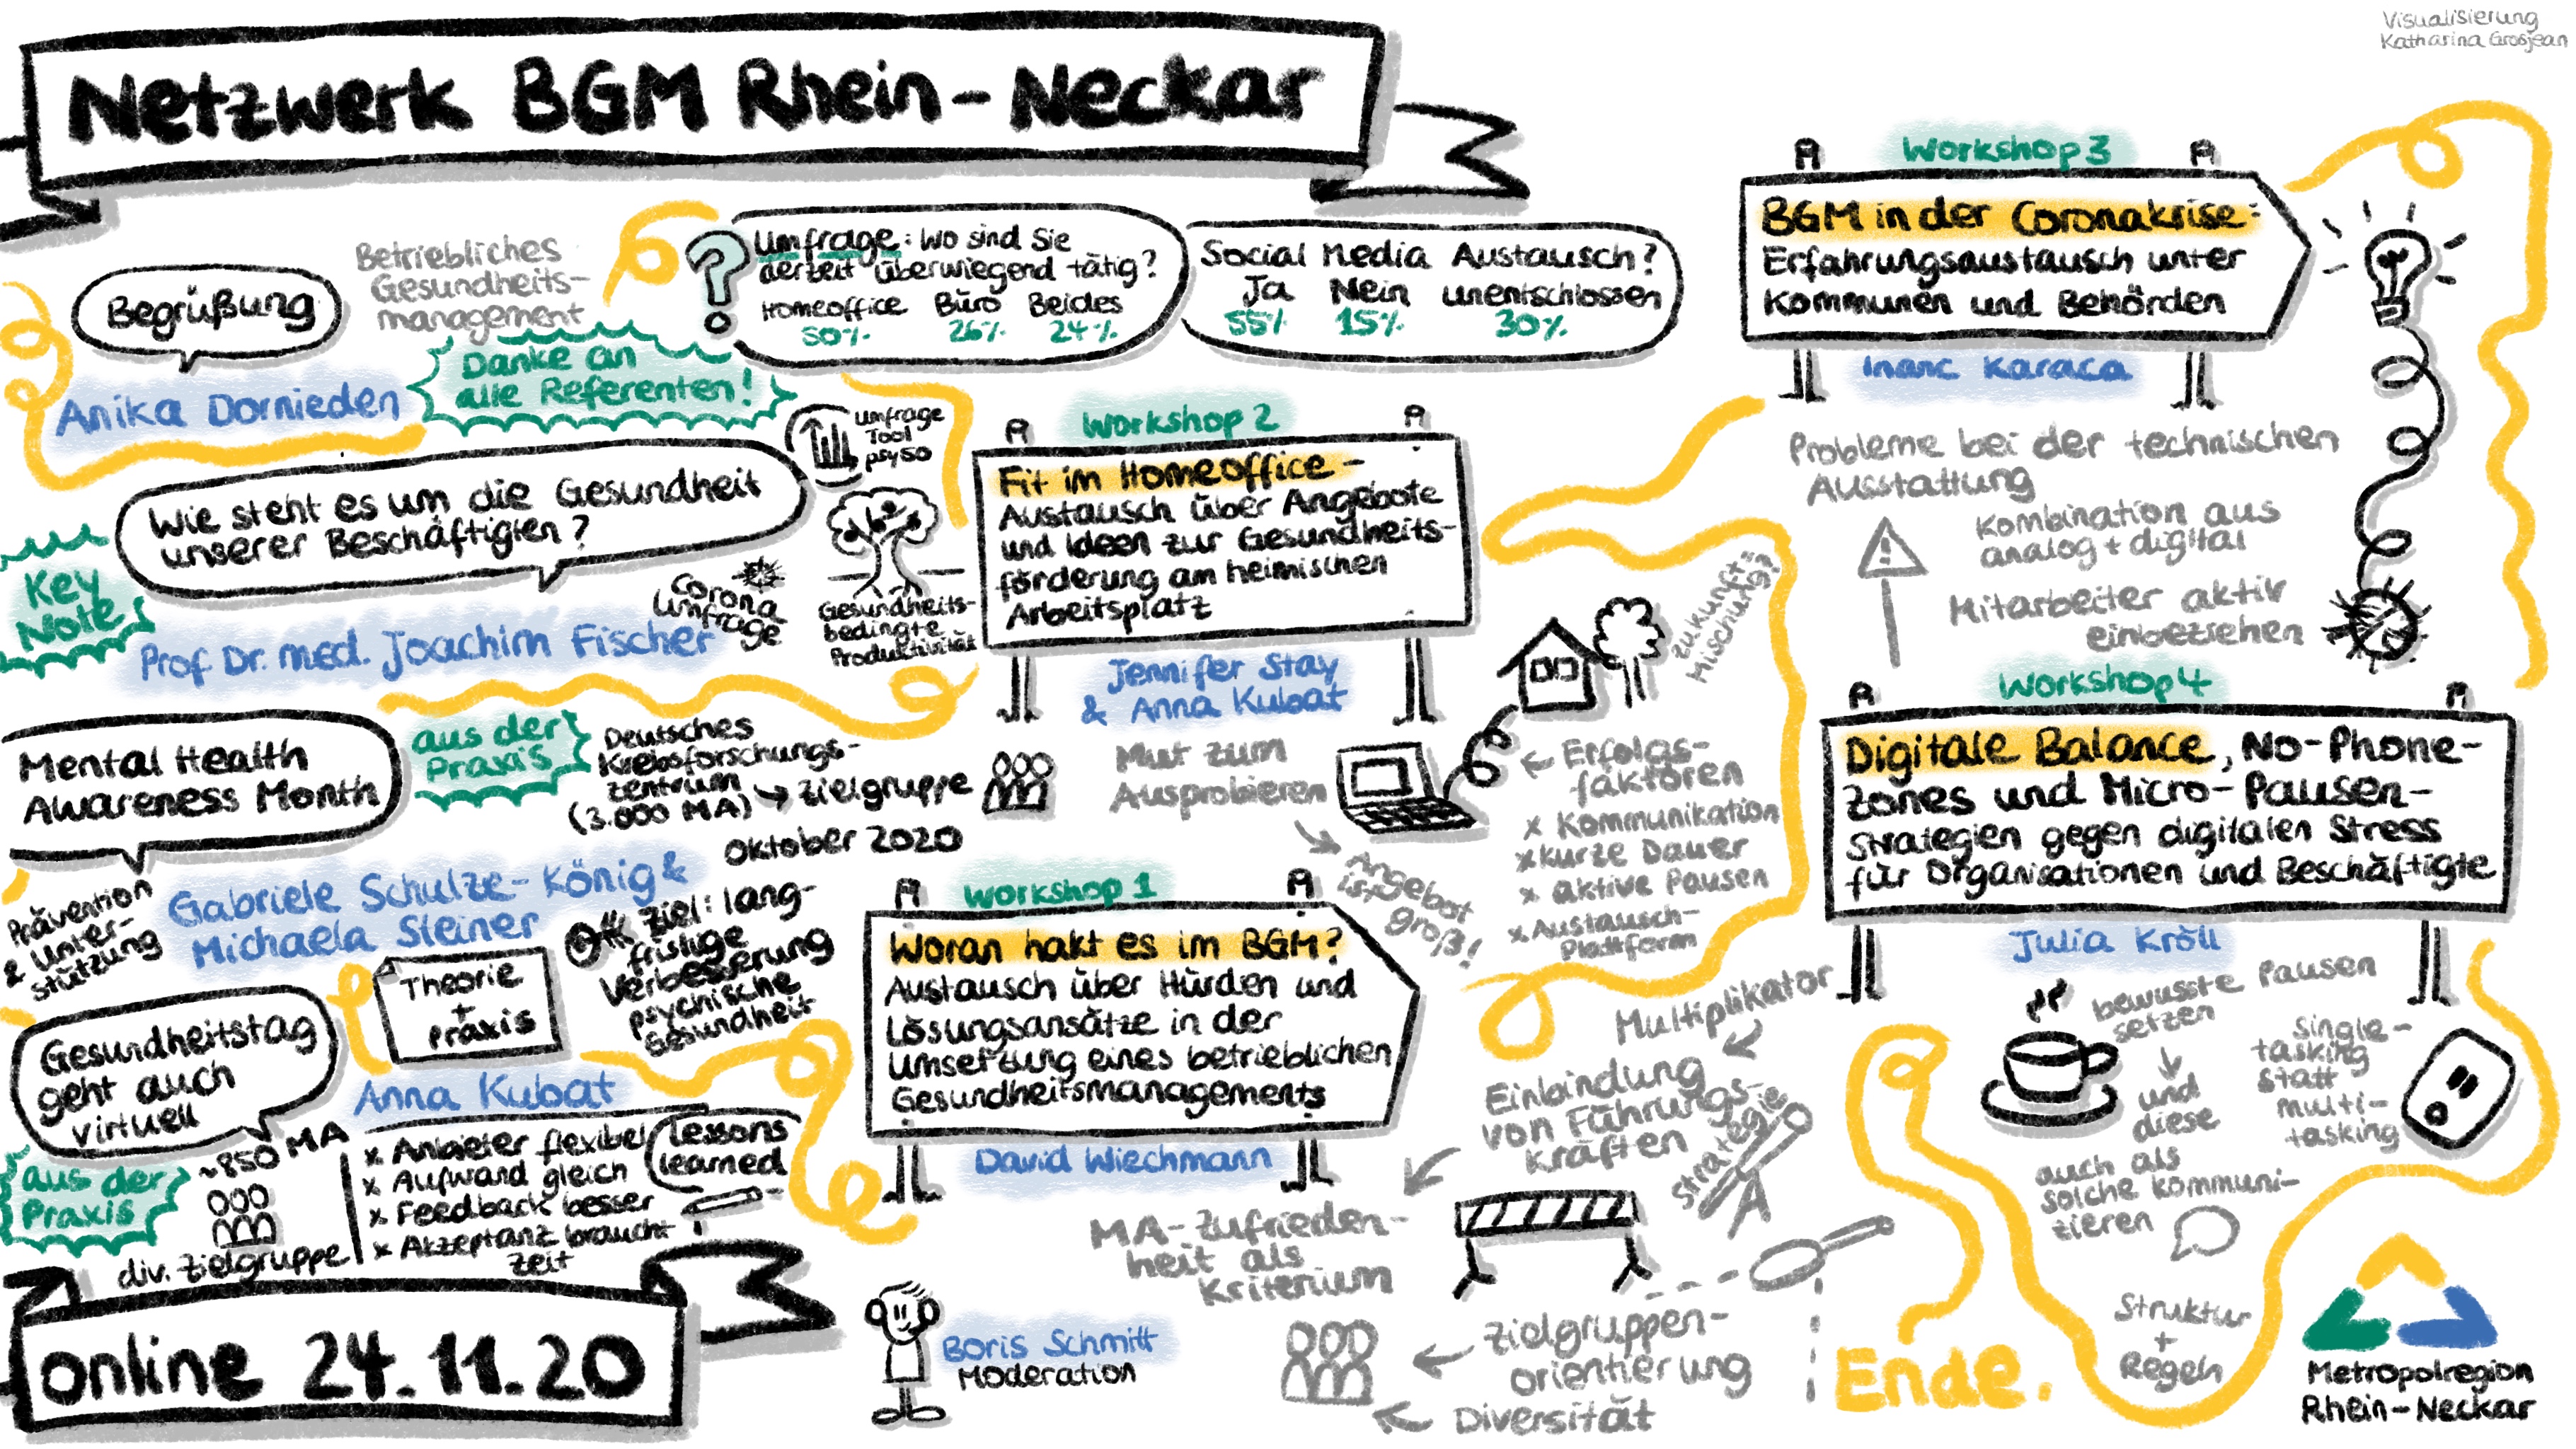 Visualisierung
Katharina Grosjean
Netzwerk BGM Rhein-Neckar
Begrüßung
Anika Dornieden
Betriebliches
Gesundheits-
management
Danke an
alle Referenten!
Umfrage: Wo sind Sie
derzeit überwiegend tätig?
Homeoffice Büro Beides
50% 26% 24%
Social Media Austausch?
Ja Nein unentschlossen
55% 15% 30%
Key
Note
Wie steht es um die Gesundheit
unserer Beschäftigten?
Prof. Dr. med. Joachim Fischer
Umfrage
Tool
psy50
Corona
Umfrage
Gesundheits-
bedingte
Produktivität
Mental Health
Awareness Month
aus der
Praxis
Deutsches
Krebsforschungs-
zentrum
(3.000 MA) → Zielgruppe
Oktober 2020
Gabriele Schulze-König &
Michaela Steiner
Prävention
& Unter-
stützung
Theorie
+
Praxis
Ziel: lang-
fristige
Verbesserung
psychische
Gesundheit
Gesundheitstag
geht auch
virtuell
Anna Kubat
aus der
Praxis
~850 MA
div. Zielgruppe
x Anbieter flexibel
x Aufwand gleich
x Feedback besser
x Akzeptanz braucht
Zeit
lessons
learned
online 24.11.20
Boris Schmitt
Moderation
Workshop 1
Woran hakt es im BGM?
Austausch über Hürden und
Lösungsansätze in der
Umsetzung eines betrieblichen
Gesundheitsmanagements
David Wiechmann
Multiplikator
Einbindung
von Führungs-
kräften
Strategie
MA-Zufrieden-
heit als
Kriterium
Zielgruppen-
orientierung
Diversität
Workshop 2
Fit im Homeoffice -
Austausch über Angebote
und Ideen zur Gesundheits-
förderung am heimischen
Arbeitsplatz
Jennifer Stay
& Anna Kubat
Mut zum
Ausprobieren
Angebot
ist
groß!
Zukunft =
Mischung?
← Erfolgs-
faktoren
x Kommunikation
x kurze Dauer
x aktive Pausen
x Austausch-
Plattform
Workshop 3
BGM in der Coronakrise:
Erfahrungsaustausch unter
Kommunen und Behörden
Inanc Karaca
Probleme bei der technischen
Ausstattung
Kombination aus
analog + digital
Mitarbeiter aktiv
einbeziehen
Workshop 4
Digitale Balance, No-Phone-
Zones und Micro-Pausen-
Strategien gegen digitalen Stress
für Organisationen und Beschäftigte
Julia Kröll
bewusste Pausen
setzen
und
diese
auch als
solche kommuni-
zieren
Single-
tasking
statt
multi-
tasking
Struktur
+
Regeln
Ende.
Metropolregion
Rhein-Neckar